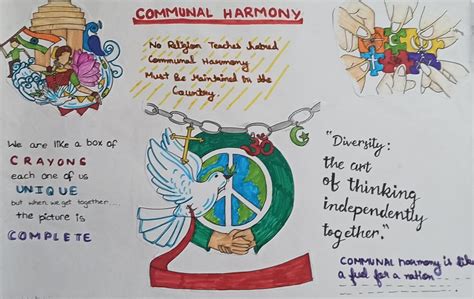 COMMUNAL HARMONY
No Religion Teaches hatred
Communal Harmony
Must Be Maintained in the
Country.
We are like a box of
CRAYONS
each one of us
UNIQUE
but when we get together....
the picture is
COMPLETE
"Diversity:
the art
of thinking
independently
together."
COMMUNAL harmony is like
a fuel for a nation